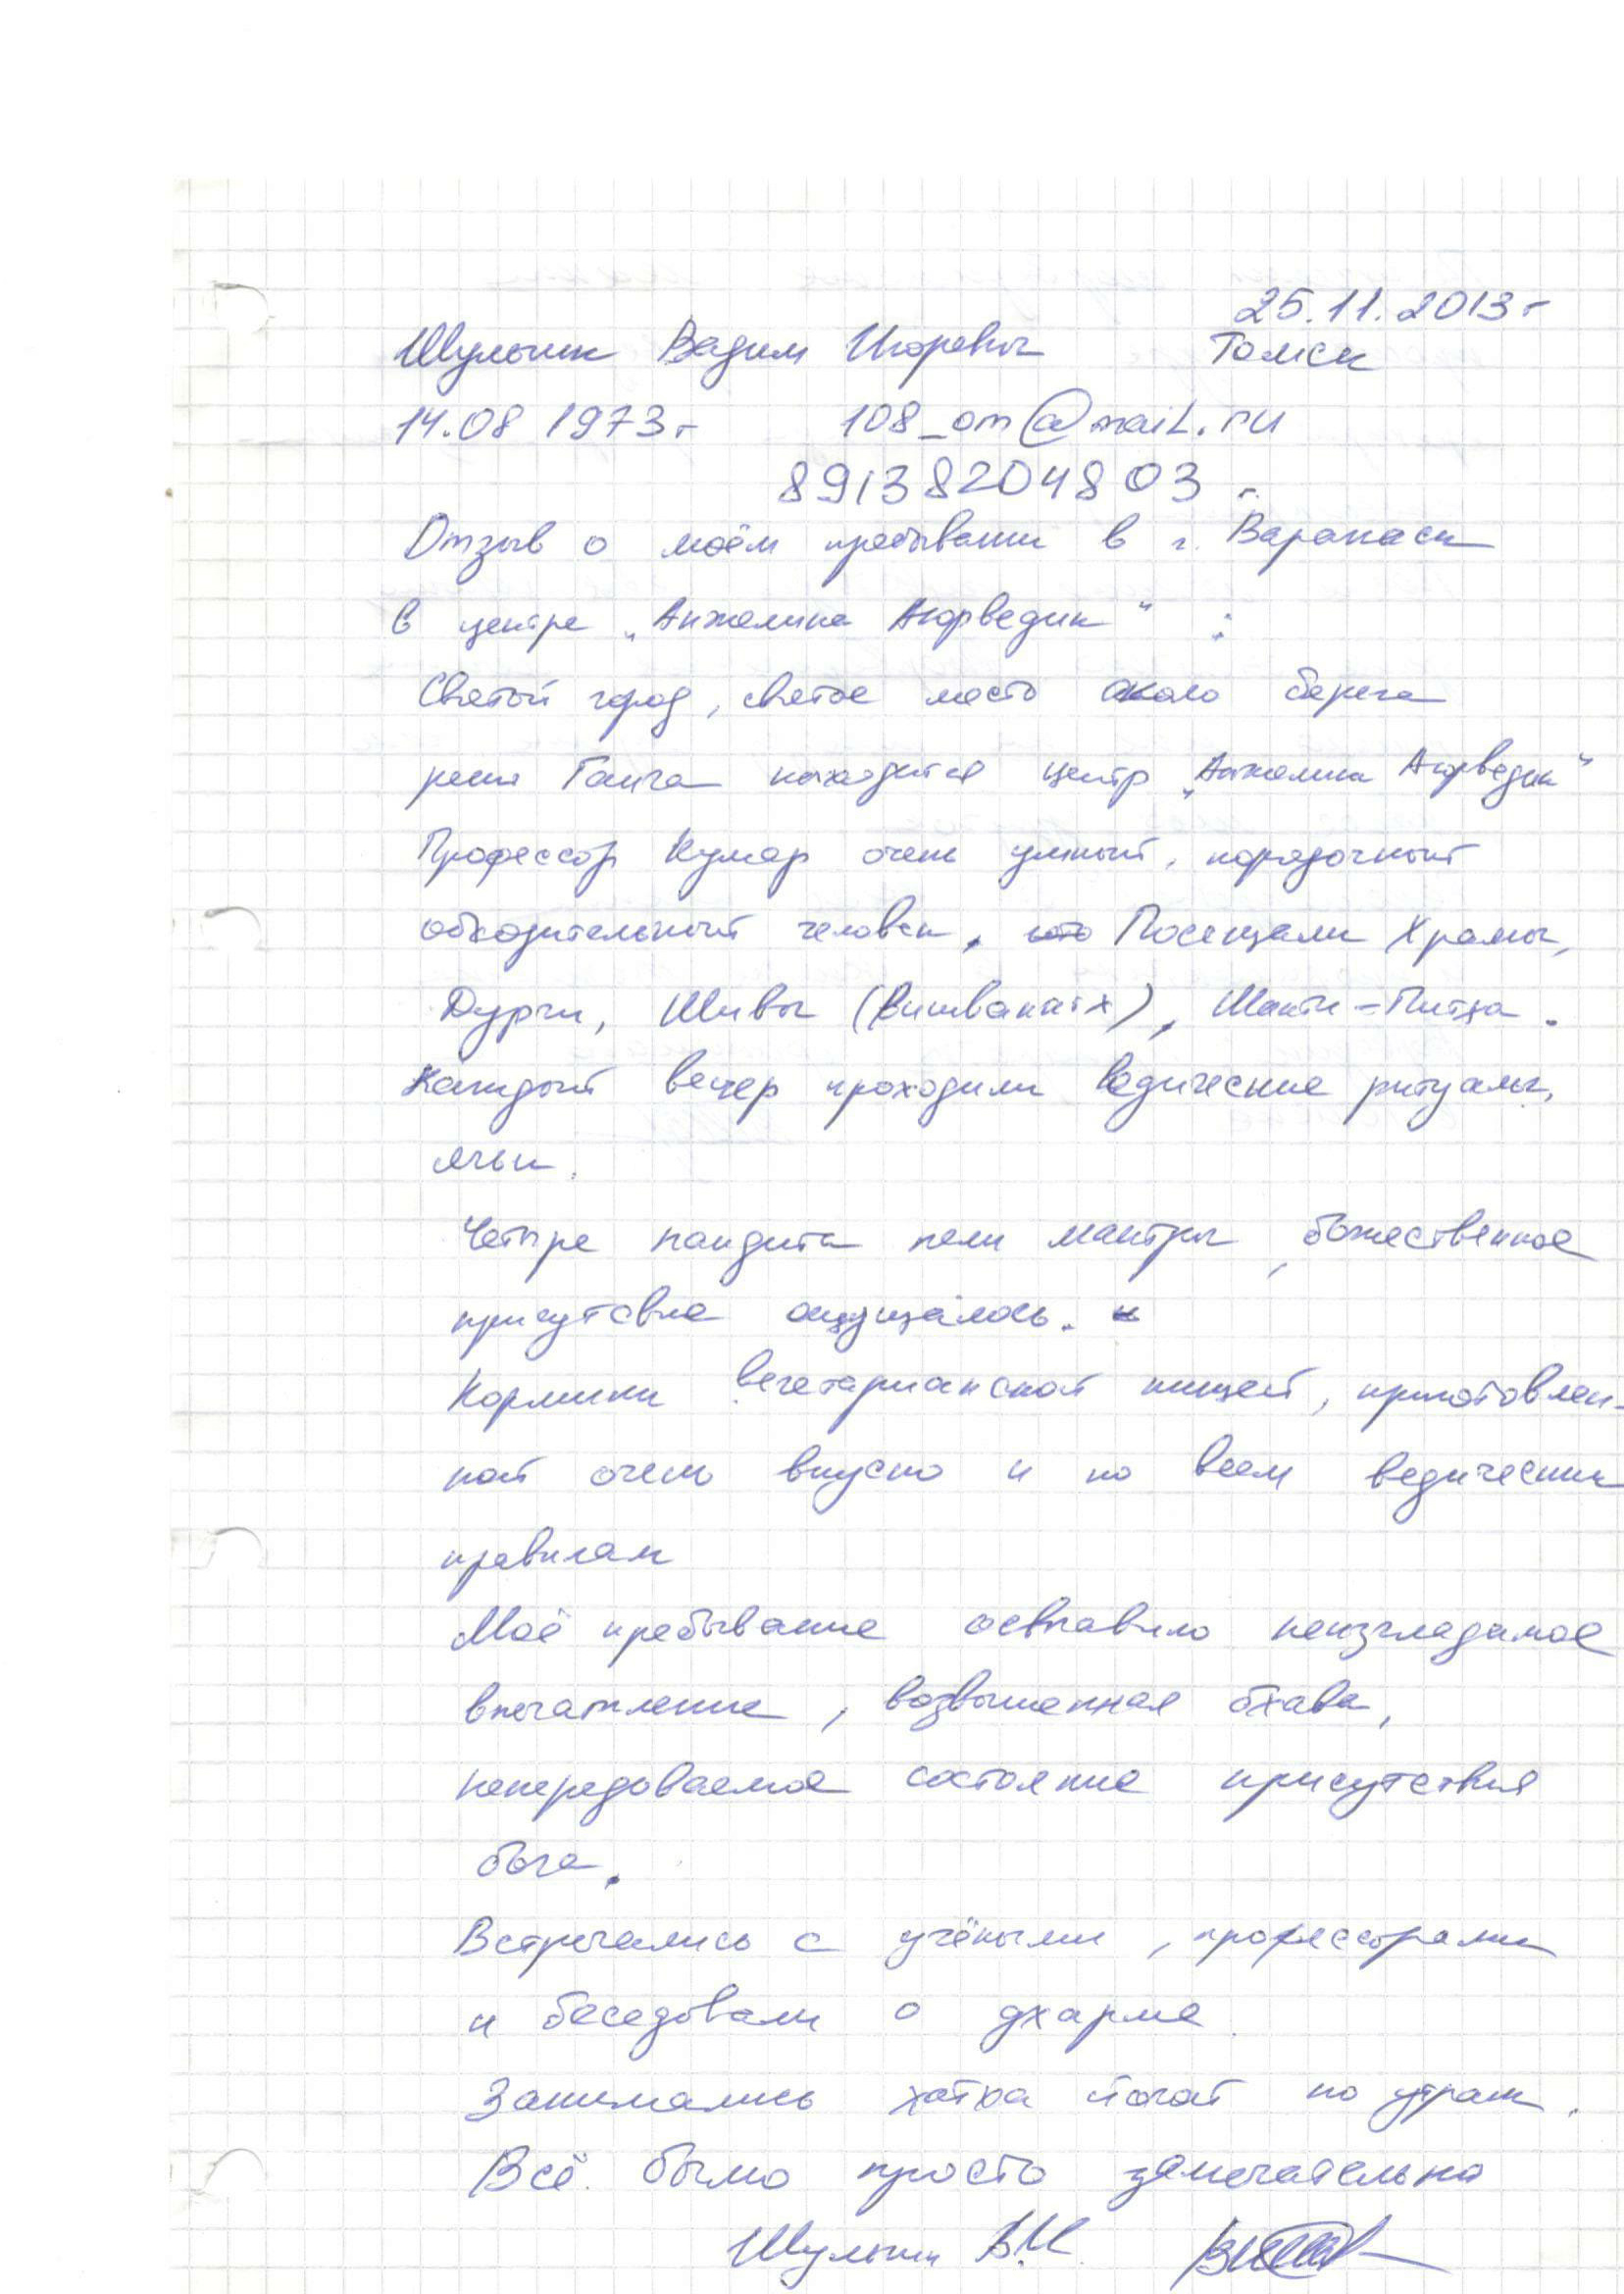 25.11.2013г
Шульпин Вадим Игоревич Томск
14.08 1973г 108_om@mail.ru
89138204803
Отзыв о моём пребывании в г. Варанаси
в центре „Анжелина Аюрведик“ :
Святой город, святое место около берега
реки Ганга находится центр „Анжелина Аюрведик“
Профессор Кумар очень умный, порядочный
обходительный человек. Посещали Храмы,
Дурги, Шивы (Вишванатх), Шакти-Питха.
Каждый вечер проходили ведические ритуалы,
ягьи.
Четыре пандита пели мантры, божественное
присутсвие ощущалось.
Кормили вегетарианской пищей, приготовлен-
ной очень вкусно и по всем ведическим
правилам
Моё пребывание неизгладимое
впечатление, возвышенная бхава,
непередоваемое состояние присутствия
бога.
Встречались с учёными, профессорами
и беседовали о дхарме.
Занимались хатха йогой по утрам.
Всё было просто замечательно
Шульпин В.И.